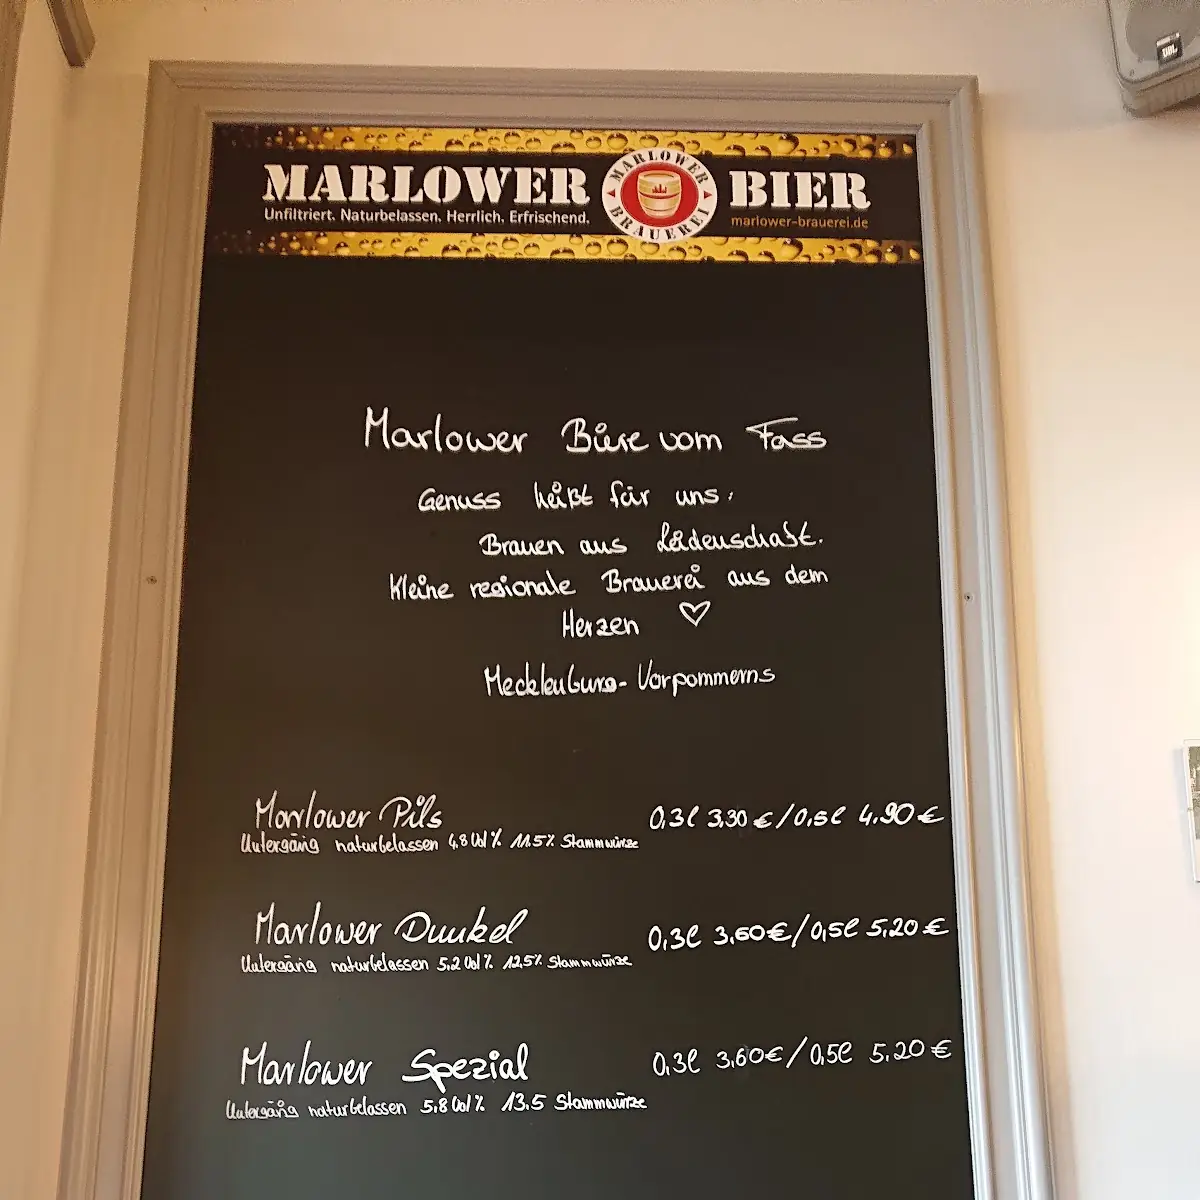 MARLOWER BIER
Unfiltriert. Naturbelassen. Herrlich. Erfrischend.
marlower-brauerei.de
MARLOWER BRAUEREI
JBL
Marlower Biere vom Fass
Genuss heißt für uns:
Brauen aus Leidenschaft.
Kleine regionale Brauerei aus dem
Herzen ♡
Mecklenburg-Vorpommerns
Marlower Pils 0,3l 3,30 €/0,5l 4.90 €
Untergärig naturbelassen 4,8 Vol % 11.5% Stammwürze
Marlower Dunkel 0,3l 3,60€/0,5l 5,20 €
Untergärig naturbelassen 5,2 Vol % 12,5% Stammwürze
Marlower Spezial 0,3l 3,60€/0,5l 5.20 €
Untergärig naturbelassen 5,8 Vol % 13.5 Stammwürze